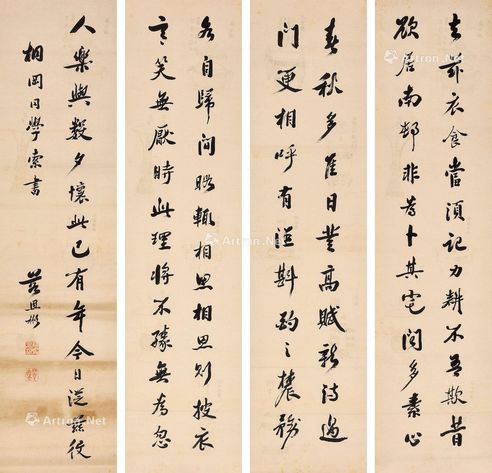 去茲衣食當須記力耕不吾欺昔
欲居南邨非為卜其宅聞多素心
春秋多佳日登高賦新詩過
門更相呼有酒斟酌之農務
各自歸間暇輒相思相思則披衣
言笑無厭時此理將不勝無為忽
人樂與數夕懷此已有年今日從茲役
桐岡同學索書